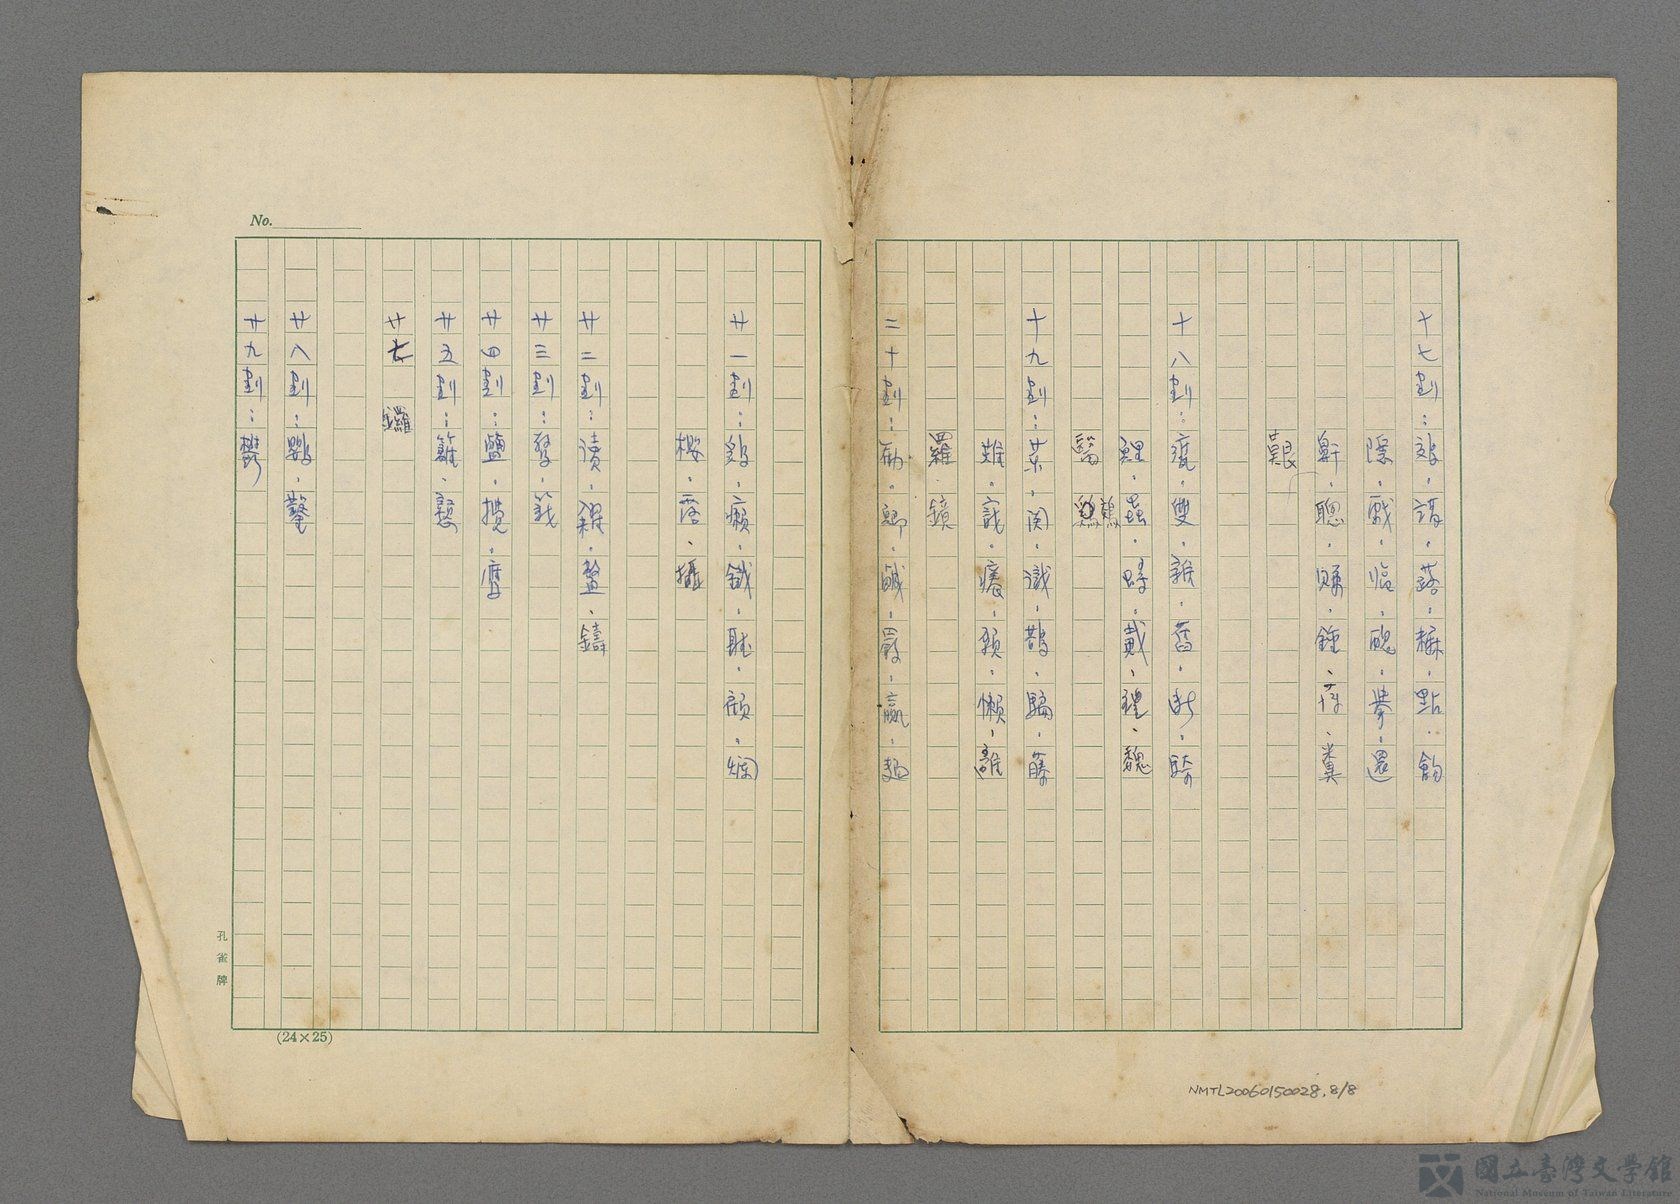 十七劃：謝．點．餉
隱．戲．臨．醜．舉．還
鼾．聰．賺．鍾．薛．糞
艱
十八劃：甕．雙．雜．舊．斷．騎
鯉．蟲．蟳．戴．禮．魏
醫．鵝
十九劃：葉．關．識．鵲．騙．藤
難．癢．願．懶．離
羅．鏡
二十劃：勸．鹹．嚴．贏
廿一劃：雞．癩．鐵．聽．顧．爛
櫻．露．攝
廿二劃：讀．糴．盤．鑄
廿三劃：
廿四劃：鹽．攬．鷹
廿五劃：籬．
廿七　鑼
廿八劃：鸚．鑿
廿九劃：鬱
No.
孔雀牌
(24×25)
NMTL20060150028.8/8
國立臺灣文學館
National Museum of Taiwan Literature